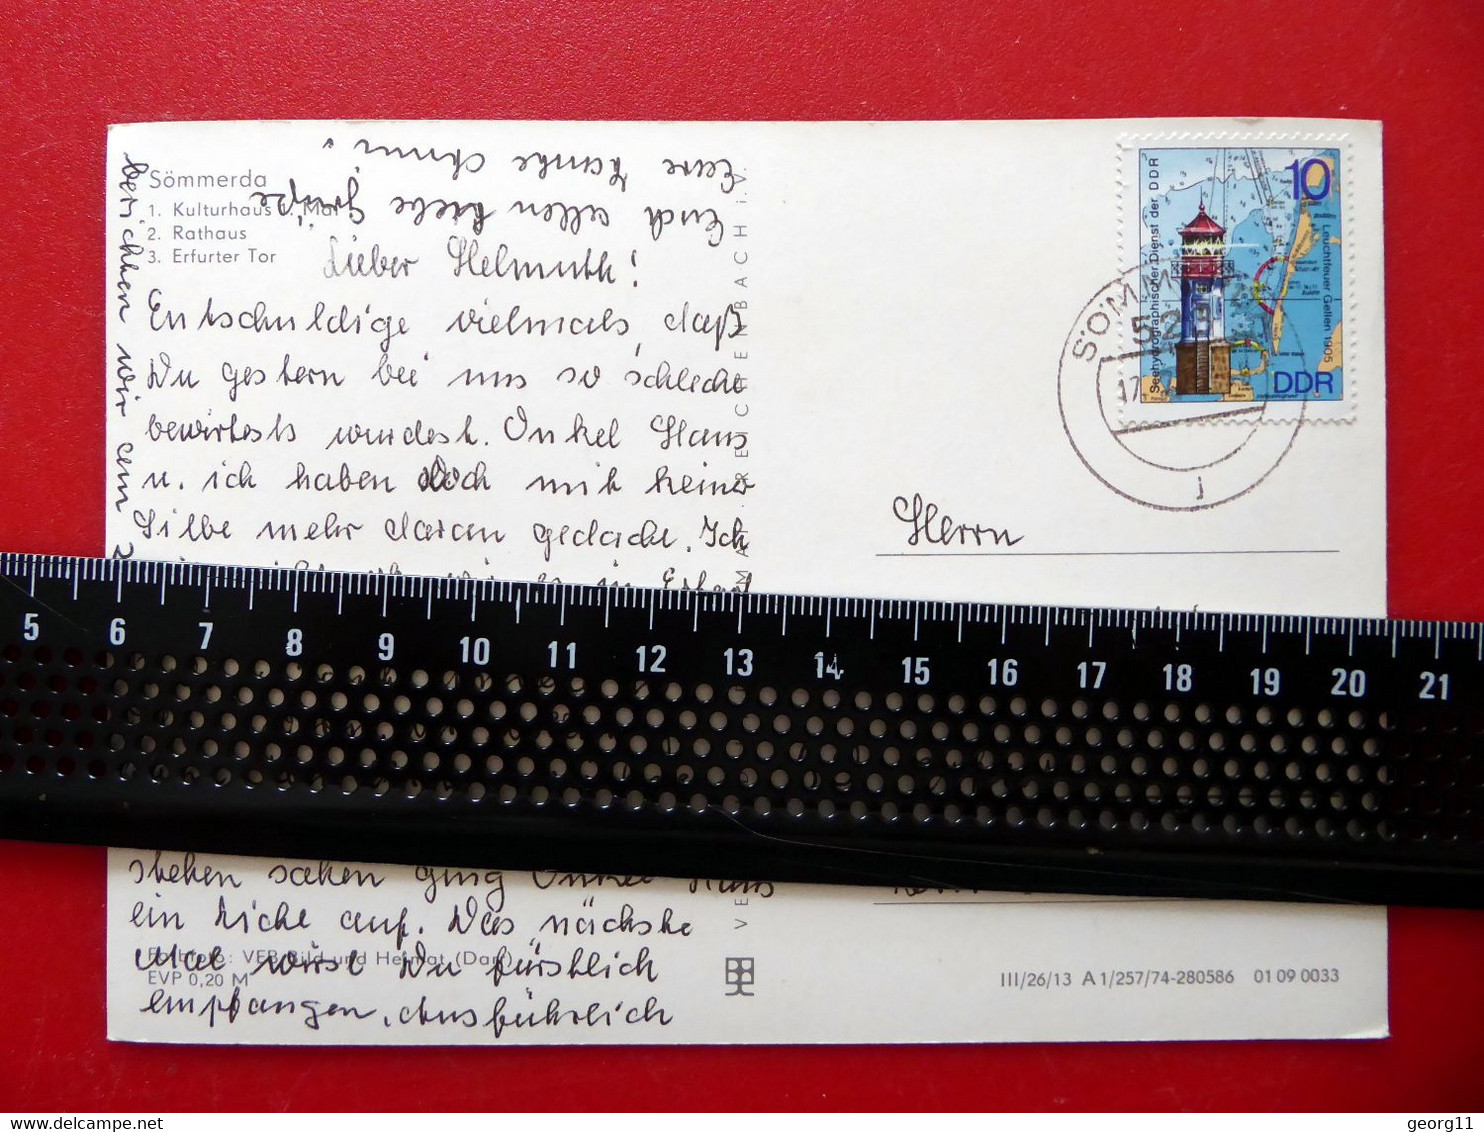 Sömmerda
1. Kulturhaus 1. Mai
2. Rathaus
3. Erfurter Tor
Lieber Helmuth!
Entschuldige vielmals, daß
Du gestern bei uns so schlecht
bewirtest wurdest. Onkel Hans
u. ich haben doch mit keiner
Silbe mehr daran gedacht. Ich
in Erfurt
stehen sahen ging Onkel Hans
ein Licht auf. Das nächste
Mal wirst Du fürstlich
empfangen. Ausführlich
berichten wir am 2
Euch allen liebe Grüße
Eure Tante Anni
Farbfoto: VEB Bild und Heimat (Darr)
EVP 0,20 M
REICHENBACH i. V.
10
Seehydrographischer Dienst der DDR
Leuchtfeuer Gellen 1905
DDR
SÖMM
523
17.
j
Herrn
III/26/13 A 1/257/74-280586 01 09 0033
5 6 7 8 9 10 11 12 13 14 15 16 17 18 19 20 21
georg11